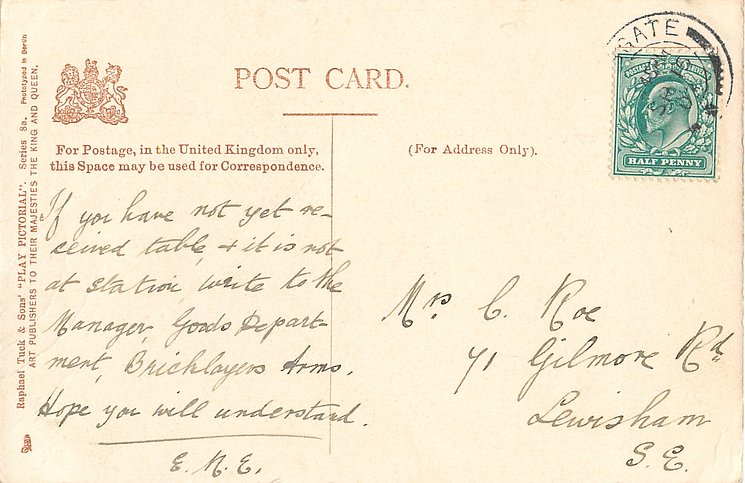 POST CARD.
For Postage, in the United Kingdom only,
this Space may be used for Correspondence.
(For Address Only).
GATE
HALF PENNY
If you have not yet re-
ceived table, + it is not
at station, write to the
Manager, Goods Depart-
ment, Bricklayers Arms.
Hope you will understand.
E. N. E.
Mrs C. Roe
71 Gilmore Rd
Lewisham
S. E.
Raphael Tuck & Sons' "PLAY PICTORIAL". Series 8a. Phototyped in Berlin
ART PUBLISHERS TO THEIR MAJESTIES THE KING AND QUEEN.